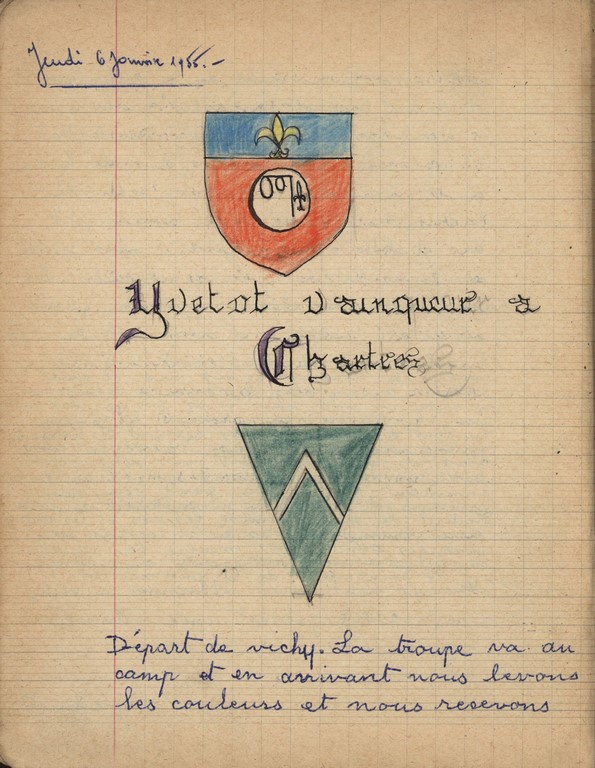 Jeudi 6 Janvier 1955.-
Yvetot vainqueur a
Chartres
Départ de vichy. La troupe va au
camp et en arrivant nous levons
les couleurs et nous recevons